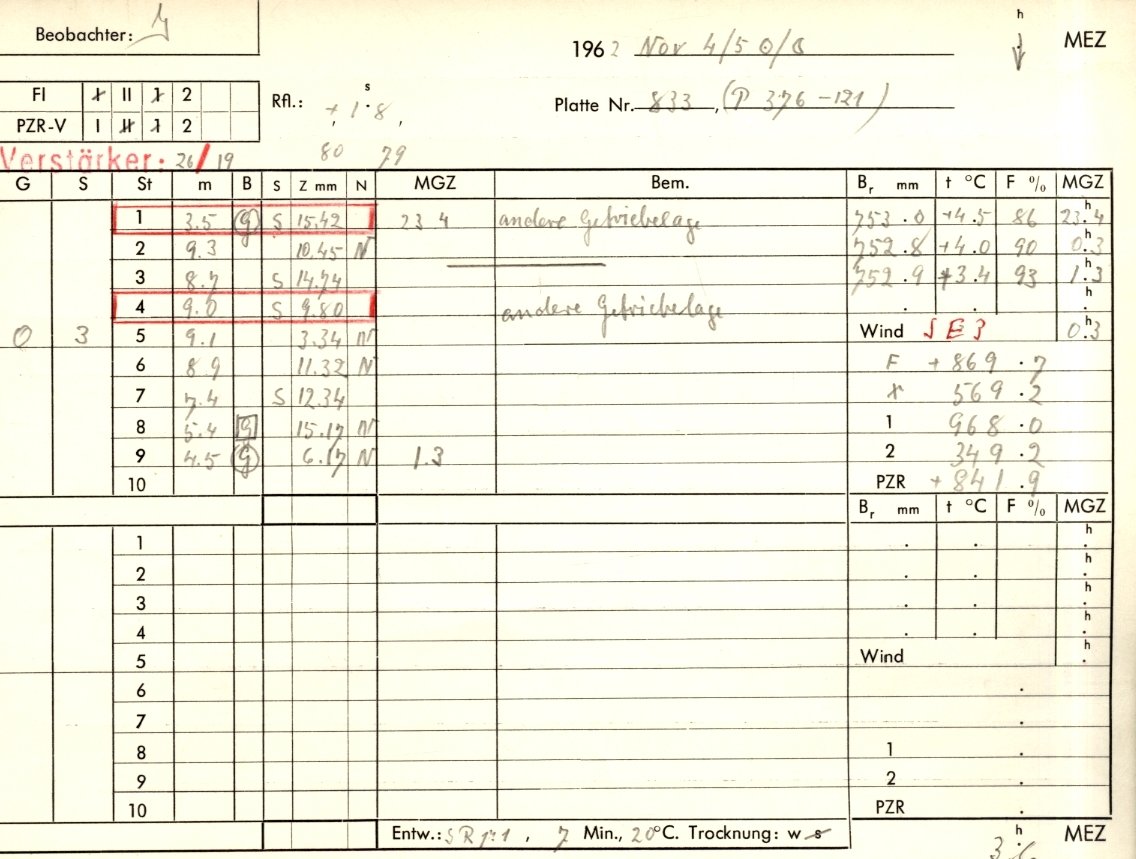 Beobachter:
h
1962 Nov 4/5 0/0 MEZ
FI I II 1 2
PZR-V I II 1 2
Rfl.: + 1 s 8
Platte Nr. 833, (P 376-121)
Verstärker: 26/19
80 79
G S St m B S Z mm N MGZ Bem. Br mm t °C F % MGZ
1 3.5 g S 15.42 23 4 andere Getriebelage 753.0 +4.5 86 23h4
2 9.3 10.45 N 752.8 +4.0 90 0h3
3 8.7 S 14.74 752.9 +3.4 93 1h3
4 9.0 S 9.80 andere Getriebelage . . h.
0 3 5 9.1 3.34 N Wind SE3 0h3
6 8.9 11.32 N F +869.7
7 7.4 S 12.34 569.2
8 5.4 g 15.17 N 1 968.0
9 4.5 g 6.17 N 1.3 2 349.2
10 PZR +841.9
Br mm t °C F % MGZ
1 . . h.
2 . . h.
3 . . h.
4 . . h.
5 Wind h.
6 .
7 .
8 1 .
9 2 .
10 PZR .
Entw.: SR 1:1, 7 Min., 20°C. Trocknung: w s
h MEZ